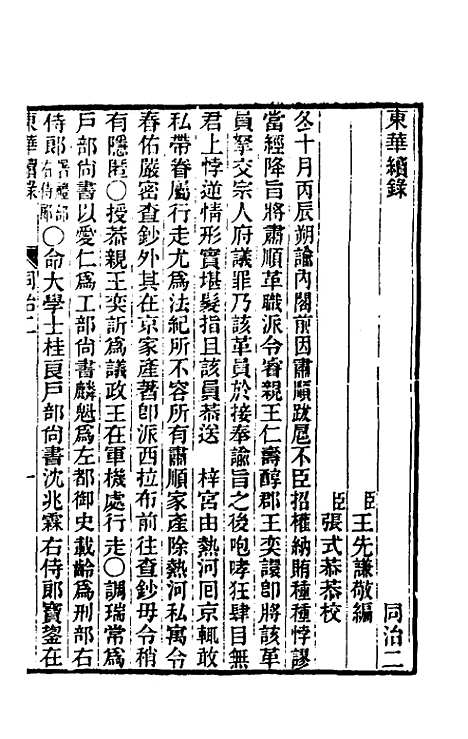 東華續錄 同治二
臣王先謙敬編
臣張式恭恭校
冬十月丙辰朔諭內閣前因肅順跋扈不臣招權納賄種種悖謬
當經降旨將肅順革職派令睿親王仁壽醇郡王奕譞卽將該革
員拏交宗人府議罪乃該革員於接奉諭旨之後咆哮狂肆目無
君上悖逆情形實堪髮指且該員恭送 梓宮由熱河回京輒敢
私帶眷屬行走尤爲法紀所不容所有肅順家產除熱河私寓令
春佑嚴密查鈔外其在京家產著卽派西拉布前往查鈔毋令稍
有隱匿○授恭親王奕訢爲議政王在軍機處行走○調瑞常爲
戶部尚書以愛仁爲工部尚書麟魁爲左都御史載齡爲刑部右
侍郎署禮部右侍郎○命大學士桂良戶部尚書沈兆霖右侍郎寶鋆在
東華續錄 同治二 一